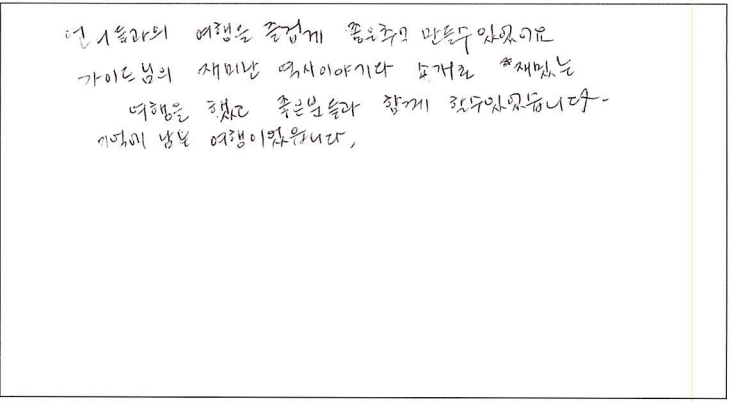 언니들과의 여행을 즐겁게 좋은추억 만들수있었어요
가이드님의 재미난 역사이야기와 소개로 재밌는
여행을 했고 좋은분들과 함께 할수있었습니다.
기억에 남는 여행이었습니다.